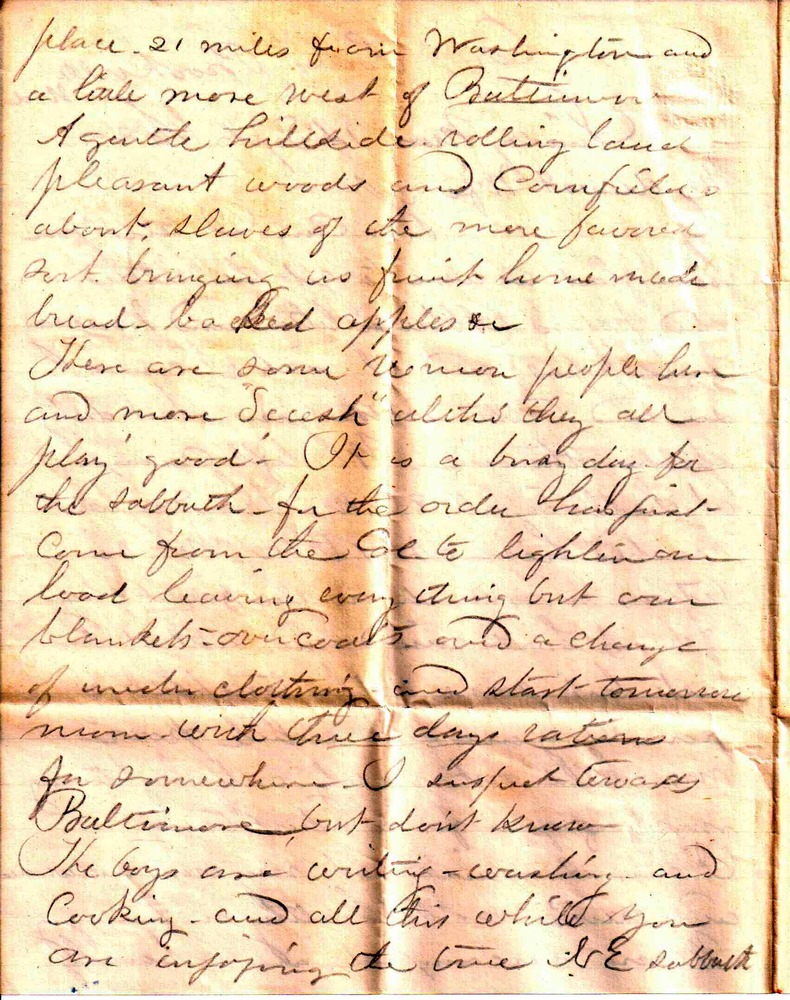 place - 21 miles from Washington and
a little more west of Baltimore
A gentle hillside rolling land
pleasant woods and Cornfields
about, slaves of the more favored
sort bringing us fruit home made
bread - baked apples &c
There are some Union people here
and more "Secesh" altho' they all
play 'good' - It is a busy day for
the sabbath - for the order has just
come from the Col to lighten our
load leaving every thing but our
blankets - overcoats - and a change
of under clothing - and start tomorrow
morn with three days rations
for somewhere - I suspect towards
Baltimore, but don't know
The boys are writing - washing - and
Cooking - and all this while you
are enjoying the true N E sabbath